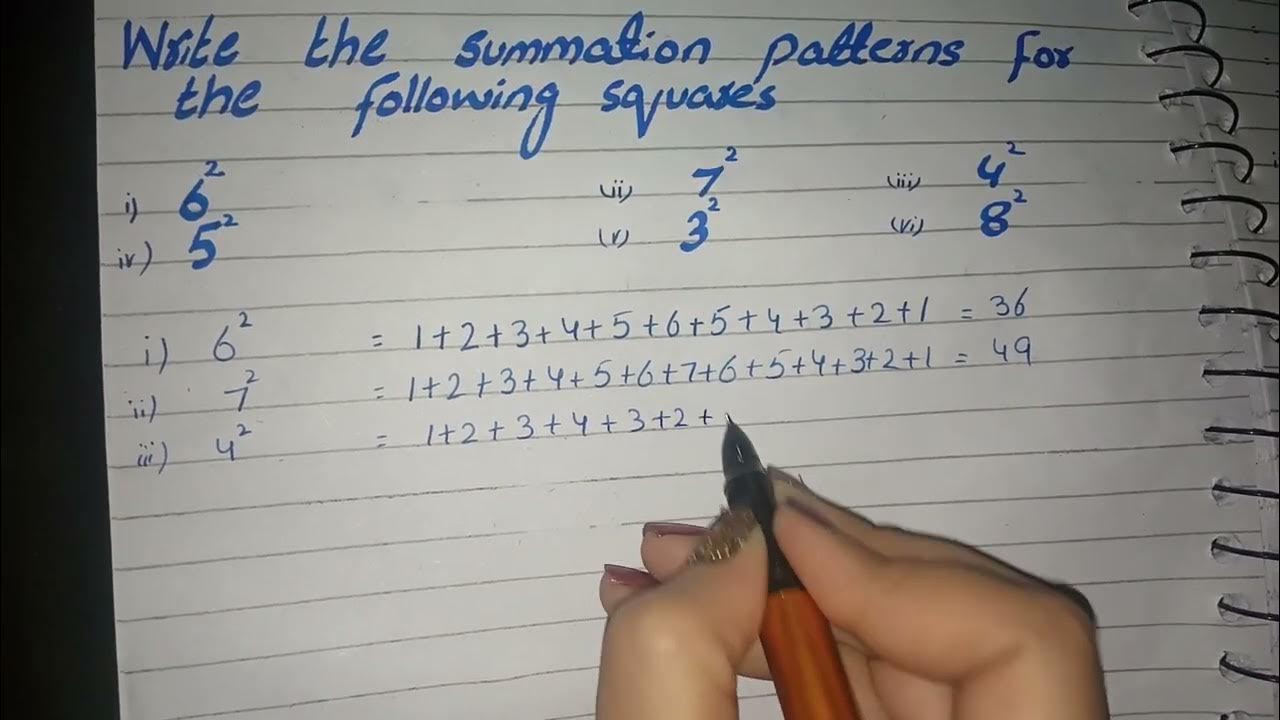 Write the summation patterns for
the following squares
i) 6² (ii) 7² (iii) 4²
iv) 5² (v) 3² (vi) 8²
i) 6² = 1+2+3+4+5+6+5+4+3+2+1 = 36
ii) 7² = 1+2+3+4+5+6+7+6+5+4+3+2+1 = 49
iii) 4² = 1+2+3+4+3+2+